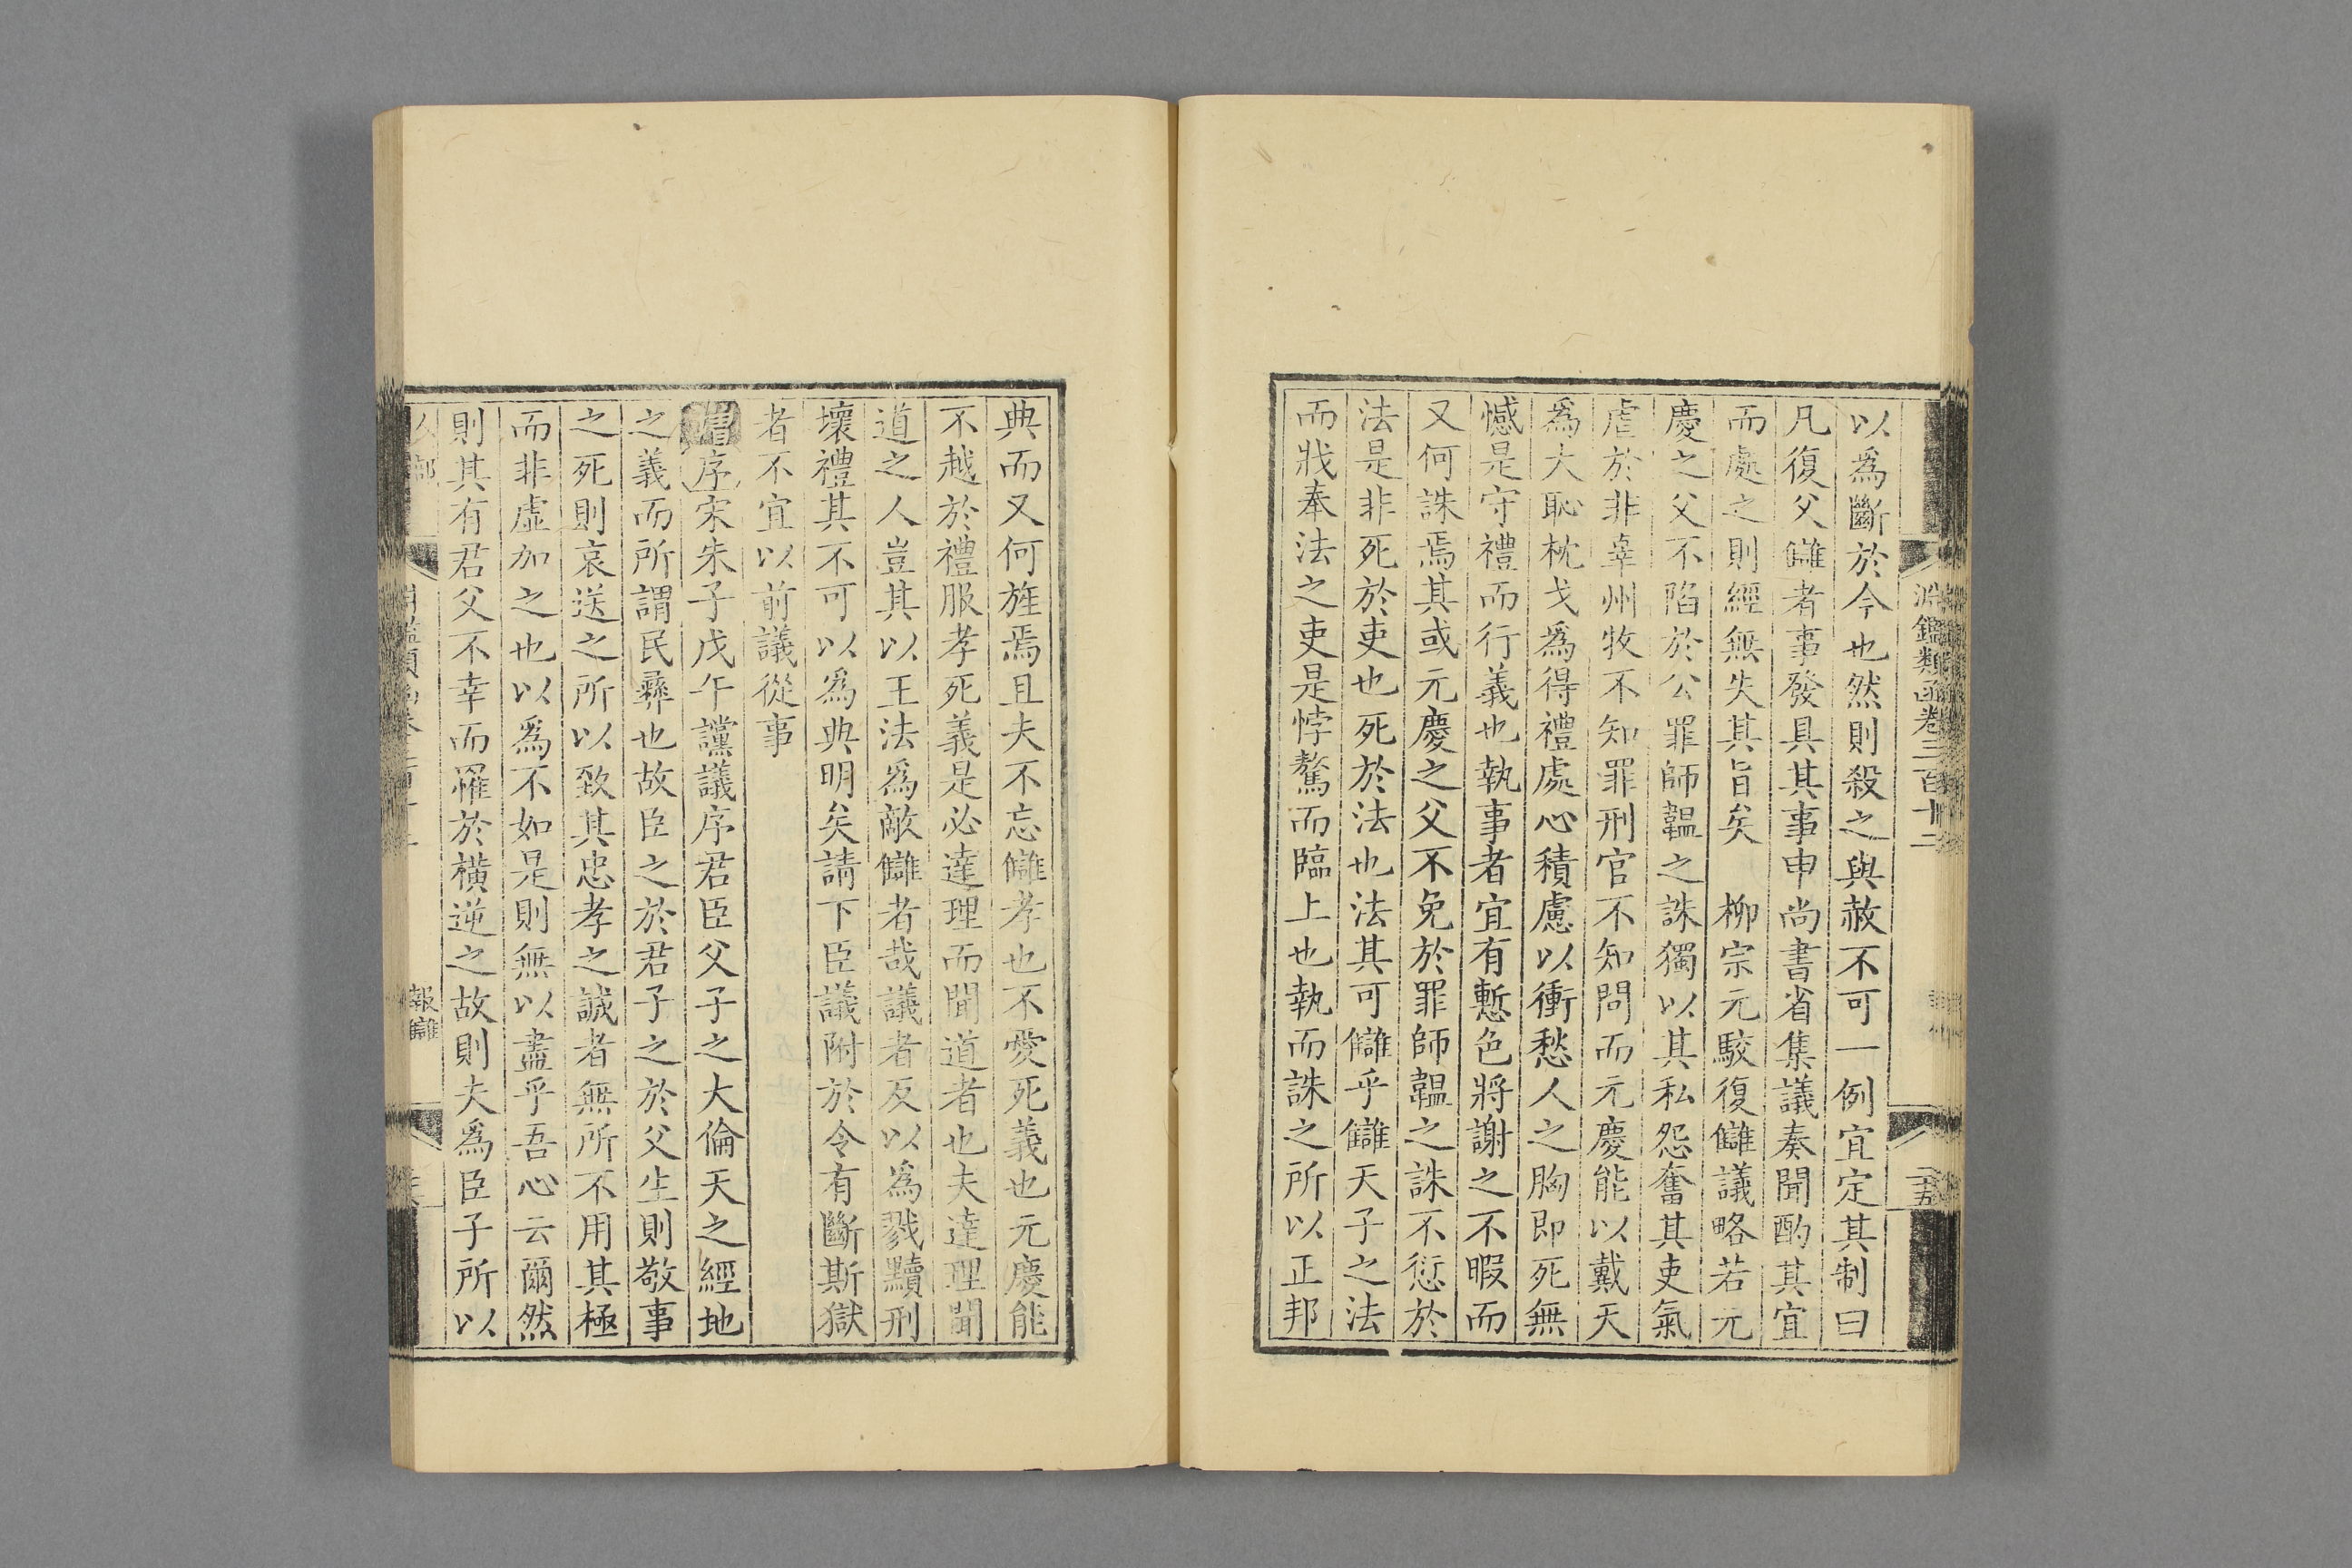 淵鑑類函卷三百十二
二十五
以爲斷於今也然則殺之與赦不可一例宜定其制曰
凡復父讎者事發具其事申尚書省集議奏聞酌其宜
而處之則經無失其旨矣 柳宗元駮復讎議略若元
慶之父不陷於公罪師韞之誅獨以其私怨奮其吏氣
虐於非辜州牧不知罪刑官不知問而元慶能以戴天
爲大恥枕戈爲得禮處心積慮以衝愁人之胸即死無
憾是守禮而行義也執事者宜有慙色將謝之不暇而
又何誅焉其或元慶之父不免於罪師韞之誅不愆於
法是非死於吏也死於法也法其可讎乎讎天子之法
而戕奉法之吏是悖驁而臨上也執而誅之所以正邦
典而又何旌焉且夫不忘讎孝也不愛死義也元慶能
不越於禮服孝死義是必達理而聞道者也夫達理聞
道之人豈其以王法爲敵讎者哉議者反以爲戮黷刑
壞禮其不可以爲典明矣請下臣議附於令有斷斯獄
者不宜以前議從事
增序宋朱子戊午讜議序君臣父子之大倫天之經地
之義而所謂民彝也故臣之於君子之於父生則敬事
之死則哀送之所以致其忠孝之誠者無所不用其極
而非虛加之也以爲不如是則無以盡乎吾心云爾然
則其有君父不幸而罹於橫逆之故則夫爲臣子所以
人部
報讎